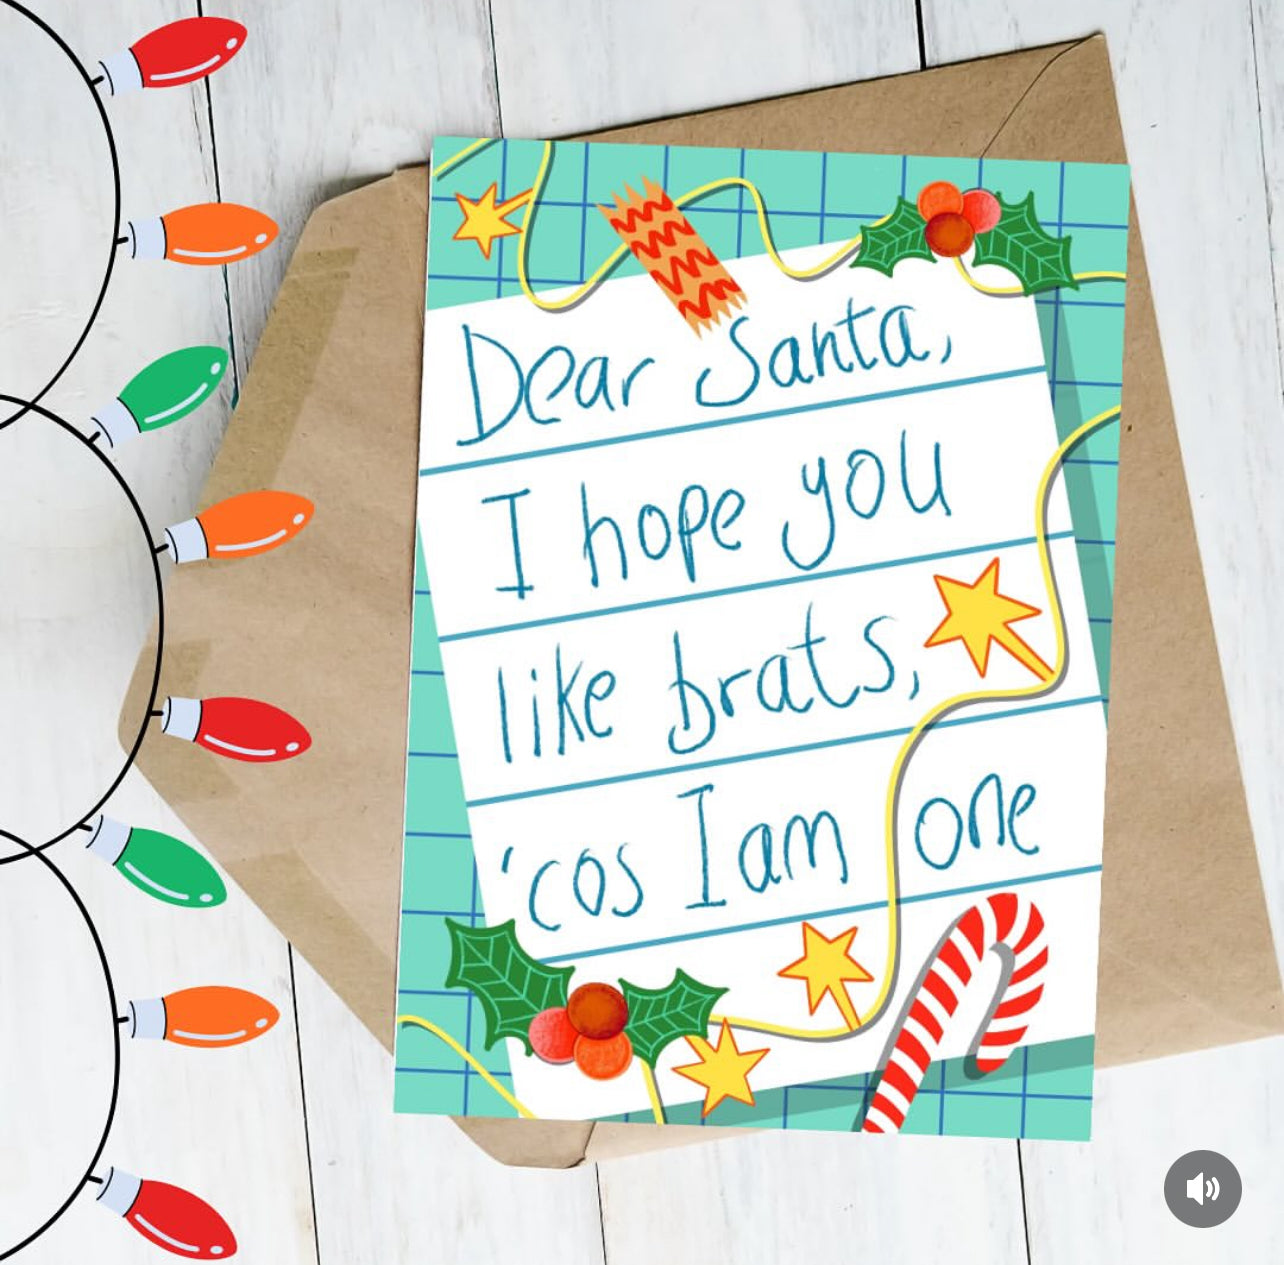 Dear Santa,
I hope you
like brats,
'cos I am one